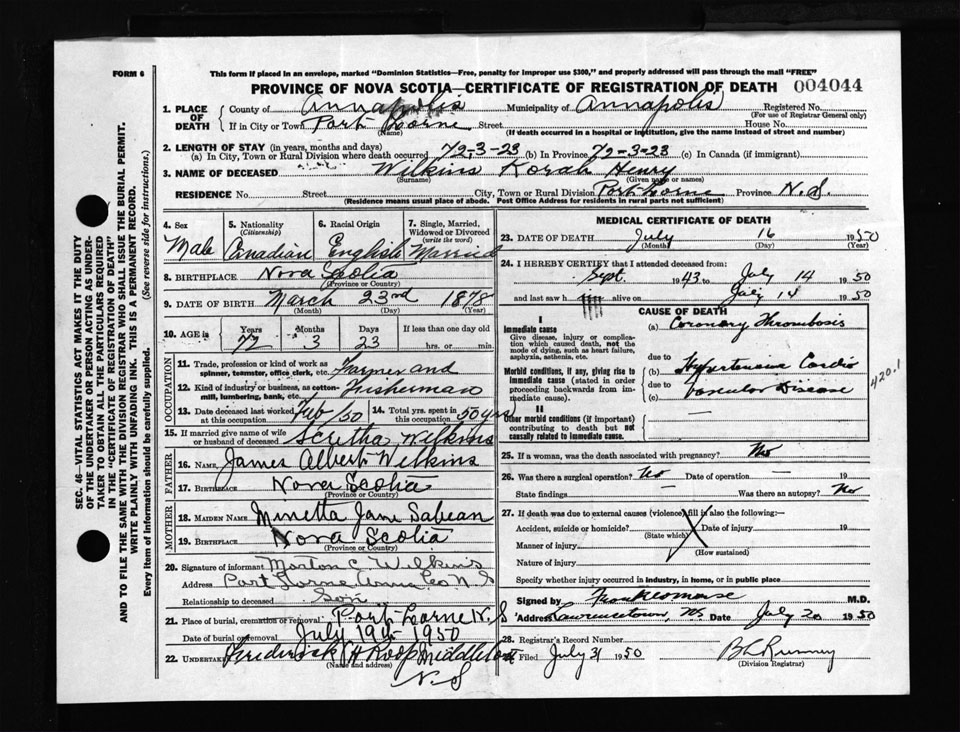 FORM 6
This form if placed in an envelope, marked "Dominion Statistics—Free, penalty for improper use $300," and properly addressed will pass through the mail "FREE"
PROVINCE OF NOVA SCOTIA—CERTIFICATE OF REGISTRATION OF DEATH 004044
SEC. 46—VITAL STATISTICS ACT MAKES IT THE DUTY
OF THE UNDERTAKER OR PERSON ACTING AS UNDER-
TAKER TO OBTAIN ALL THE PARTICULARS REQUIRED
IN THE "CERTIFICATE OF REGISTRATION OF DEATH"
AND TO FILE THE SAME WITH THE DIVISION REGISTRAR WHO SHALL ISSUE THE BURIAL PERMIT.
WRITE PLAINLY WITH UNFADING INK. THIS IS A PERMANENT RECORD.
Every item of Information should be carefully supplied. (See reverse side for instructions.)
1. PLACE OF DEATH County of Annapolis Municipality of Annapolis Registered No.
(For use of Registrar General only)
If in City or Town Port Lorne Street House No.
(Name) (If death occurred in a hospital or institution, give the name instead of street and number)
2. LENGTH OF STAY (in years, months and days)
(a) In City, Town or Rural Division where death occurred 72-3-23 (b) In Province 72-3-23 (c) In Canada (if immigrant)
3. NAME OF DECEASED Wilkins Korah Henry
(Surname) (Given name or names)
RESIDENCE No. Street City, Town or Rural Division Port Lorne Province N.S.
(Residence means usual place of abode. Post Office Address for residents in rural parts not sufficient)
4. Sex Male
5. Nationality (Citizenship) Canadian
6. Racial Origin English
7. Single, Married, Widowed or Divorced (write the word) Married
8. BIRTHPLACE Nova Scotia
(Province or Country)
9. DATE OF BIRTH March 23rd 1878
(Month) (Day) (Year)
10. AGE in Years Months Days If less than one day
77 3 23 hrs. or min.
OCCUPATION
11. Trade, profession or kind of work as spinner, teamster, office clerk, etc. Farmer and
12. Kind of industry or business, as cotton-mill, lumbering, bank, etc. Fisherman
13. Date deceased last worked at this occupation Feb/50 14. Total yrs. spent in this occupation 50 yrs
15. If married give name of wife or husband of deceased Wilkins
FATHER
16. NAME James Albert Wilkins
17. BIRTHPLACE Nova Scotia
(Province or Country)
MOTHER
18. MAIDEN NAME Minetta Jane Sabean
19. BIRTHPLACE Nova Scotia
(Province or Country)
20. Signature of informant Morton C. Wilkins
Address Port Lorne Anna Co N.S
Relationship to deceased Son
21. Place of burial, cremation or removal Port Lorne N.S
Date of burial or removal July 19th 1950
22. UNDERTAKER Frederick H Roop Middleton
(Name and address)
N.S
MEDICAL CERTIFICATE OF DEATH
23. DATE OF DEATH July 16 1950
(Month) (Day) (Year)
24. I HEREBY CERTIFY that I attended deceased from:
Sept. 1943 to July 14 1950
and last saw h alive on July 14 1950
CAUSE OF DEATH
I
Immediate cause
Give disease, injury or complication which caused death, not the mode of dying, such as heart failure, asphyxia, asthenia, etc.
(a) Coronary Thrombosis
due to
Morbid conditions, if any, giving rise to immediate cause (stated in order proceeding backwards from immediate cause).
(b) Hypertensive Cardio
due to
(c) Vascular Disease
420.1
II
Other morbid conditions (if important) contributing to death but not causally related to immediate cause. —
25. If a woman, was the death associated with pregnancy? No
26. Was there a surgical operation? No Date of operation — 19
State findings — Was there an autopsy? No
27. If death was due to external causes (violence) fill in also the following:—
Accident, suicide or homicide? Date of injury 19
(State which)
Manner of injury
(How sustained)
Nature of injury
Specify whether injury occurred in industry, in home, or in public place
Signed by M.D.
Address Lawrencetown, NS Date July 20 1950
28. Registrar's Record Number
Filed July 31 1950
(Division Registrar)